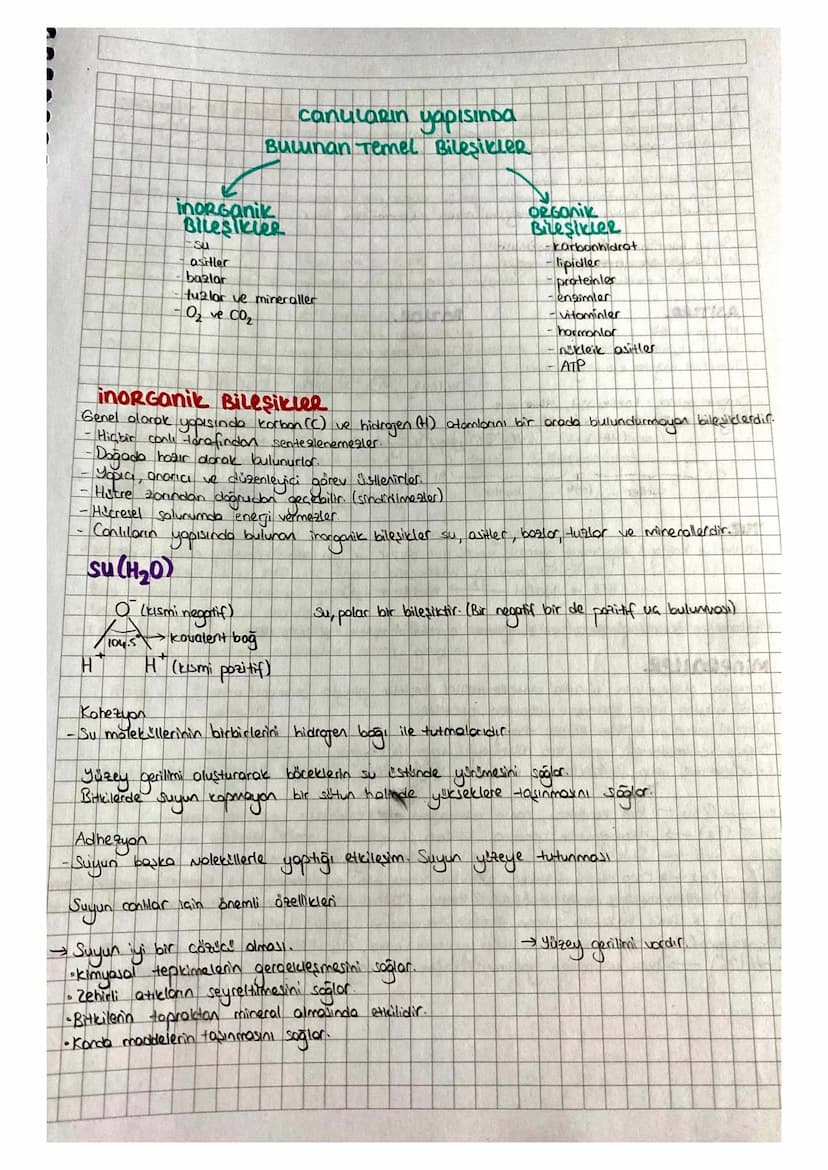 canlıların yapısında
Bulunan Temel Bileşikler
inorganik
Bileşikler
-su
- asitler
- bazlar
- tuzlar ve mineraller
- O₂ ve CO₂
organik
Bileşikler
- karbonhidrat
- lipidler
- proteinler
- enzimler
- vitaminler
- hormonlar
- nükleik asitler
- ATP
inorganik Bileşikler
Genel olarak yapısında karbon (C) ve hidrojen (H) atomlarını bir arada bulundurmayan bileşiklerdir.
- Hiçbir canlı tarafından sentezlenemezler.
- Doğada hazır olarak bulunurlar.
- Yapıcı, onarıcı ve düzenleyici görev üstlenirler.
- Hücre zarından doğrudan geçebilir. (sindirilmezler)
- Hücresel solunumda enerji vermezler.
- Canlıların yapısında bulunan inorganik bileşikler su, asitler, bazlar, tuzlar ve minerallerdir.
su (H₂O)
O⁻ (kısmi negatif)
104.5° → kovalent bağ
H⁺ H⁺ (kısmi pozitif)
Su, polar bir bileşiktir. (Bir negatif bir de pozitif uç bulunması)
Kohezyon
- Su moleküllerinin birbirlerini hidrojen bağı ile tutmalarıdır.
Yüzey gerilimi oluşturarak böceklerin su üstünde yürümesini sağlar.
Bitkilerde suyun kopmayan bir sütun halinde yükseklere taşınmasını sağlar.
Adhezyon
- Suyun başka moleküllerle yaptığı etkileşim. Suyun yüzeye tutunması
Suyun canlılar için önemli özellikleri
→ Suyun iyi bir çözücü olması.
• Kimyasal tepkimelerin gerçekleşmesini sağlar.
• Zehirli atıkların seyreltilmesini sağlar.
• Bitkilerin topraktan mineral almasında etkilidir.
• Kanda maddelerin taşınmasını sağlar.
→ Yüzey gerilimi vardır.